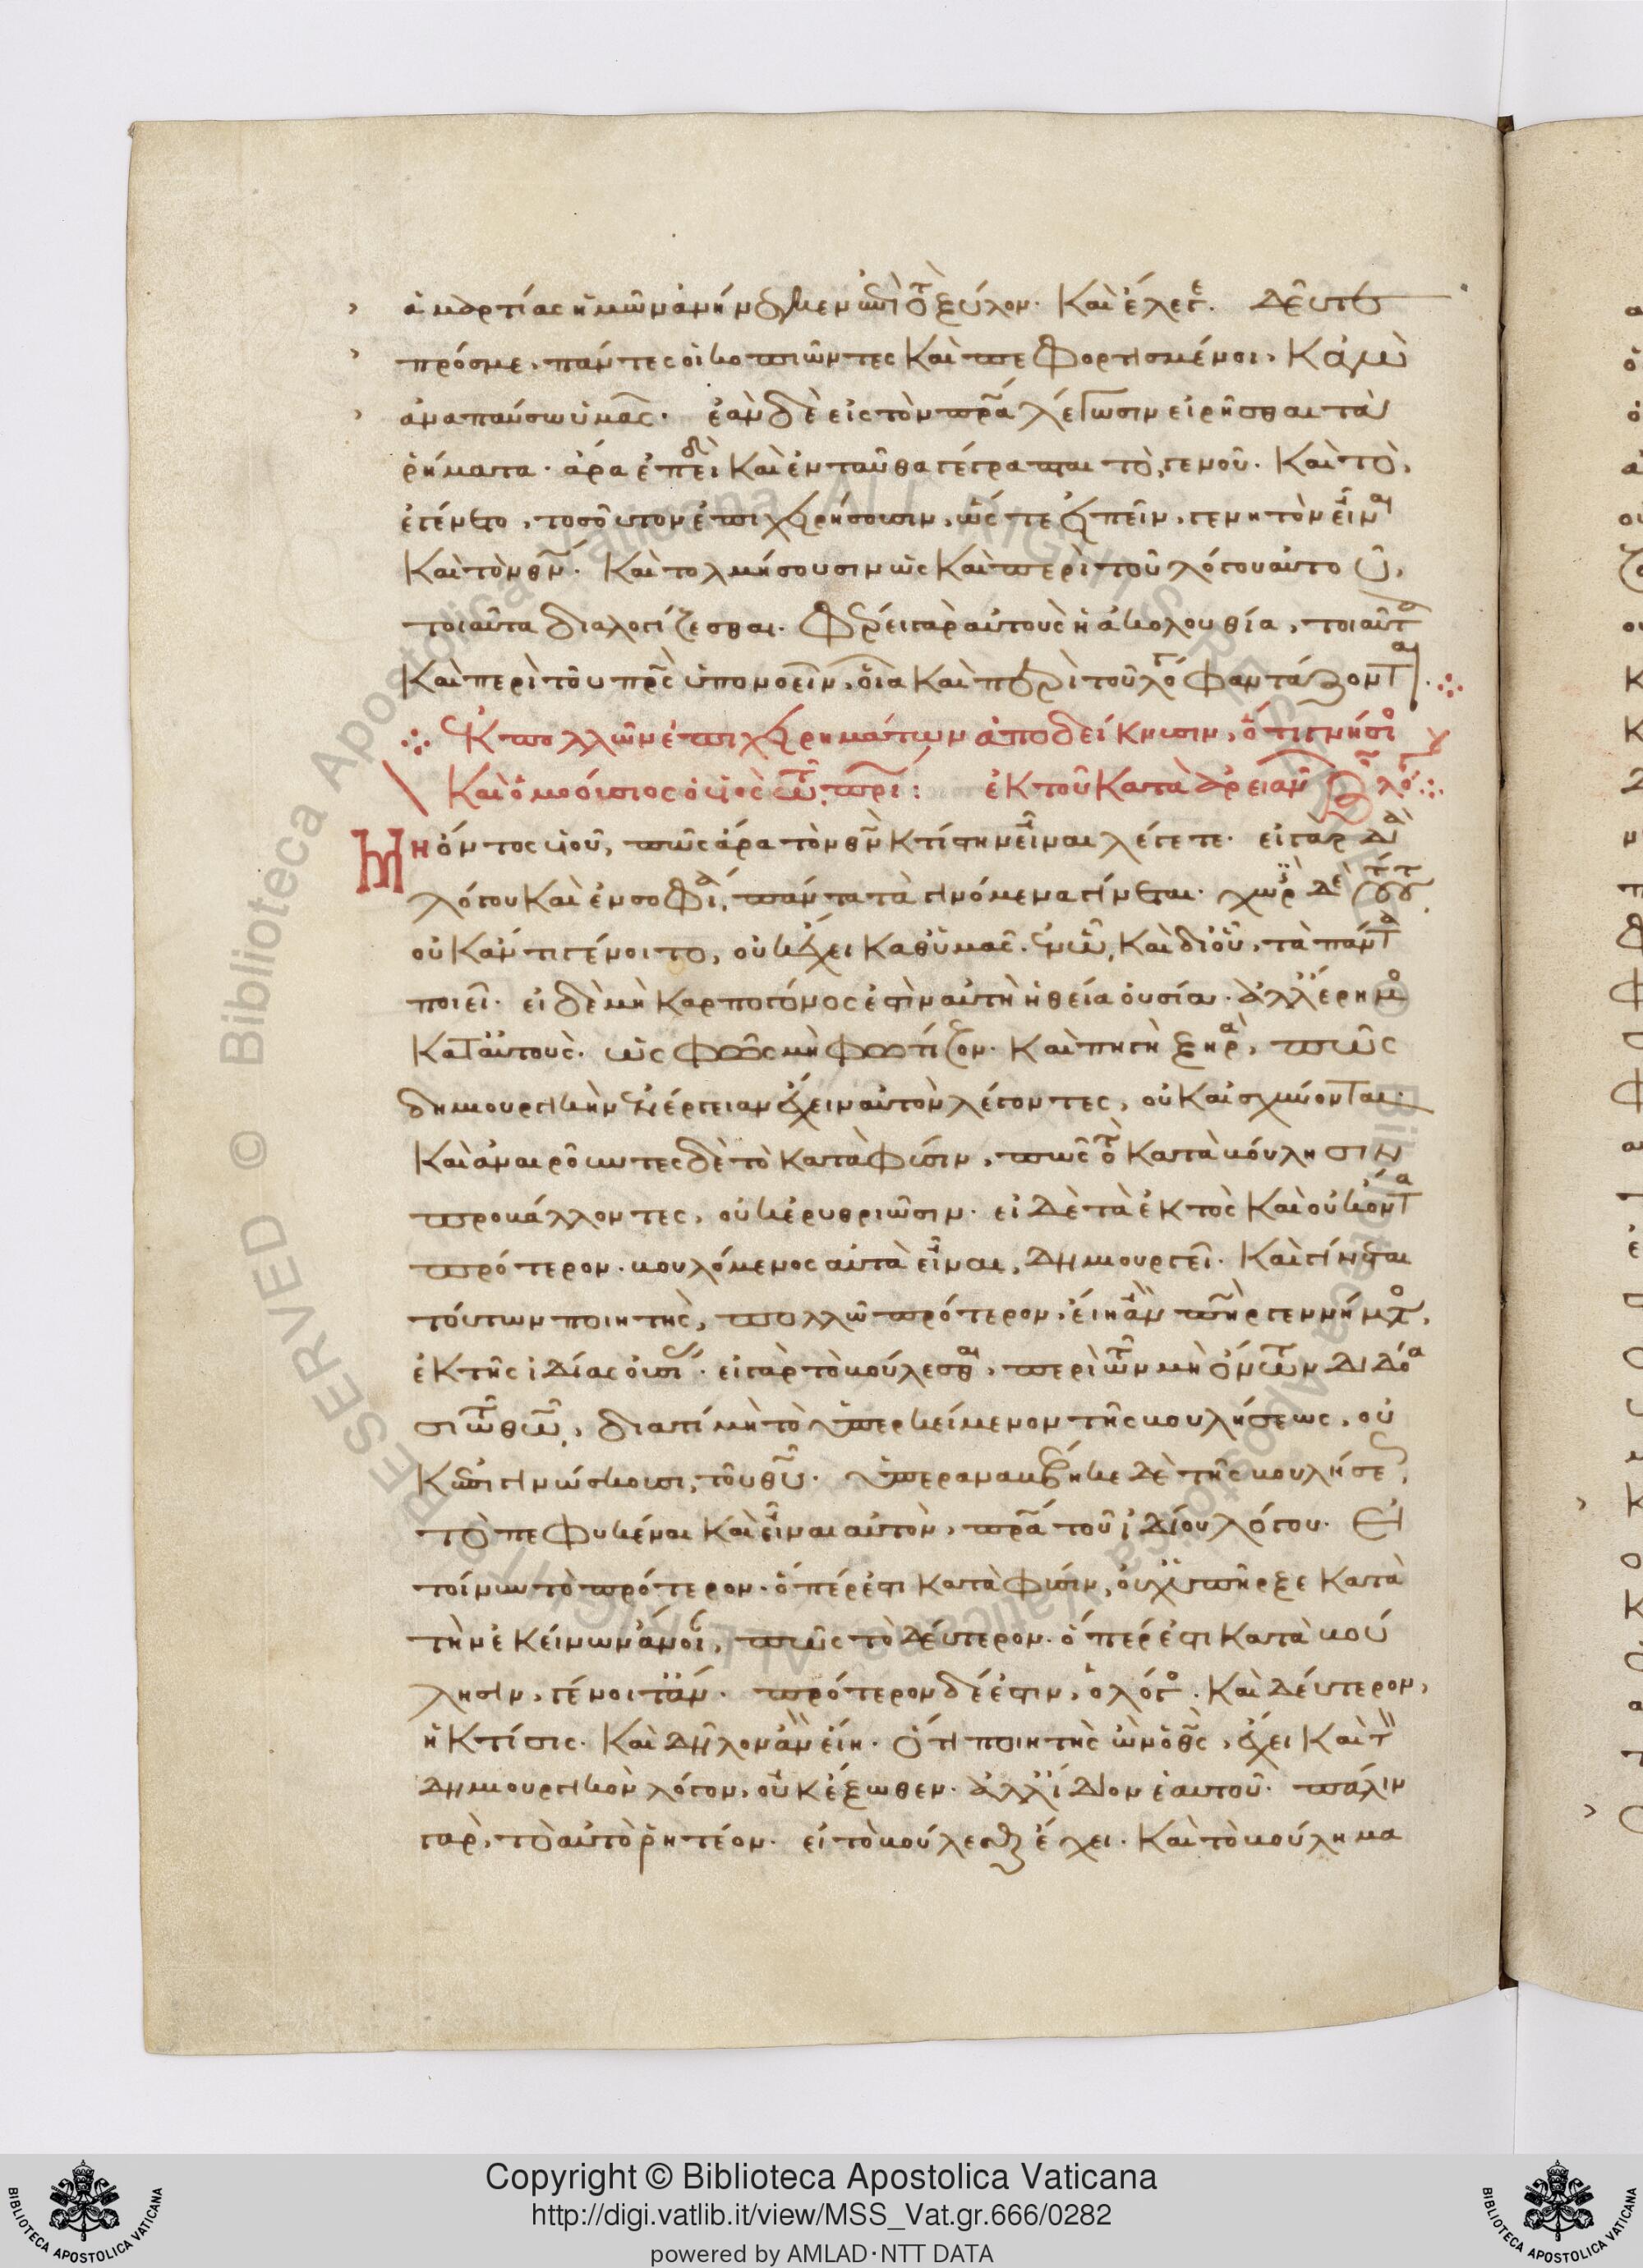 ἁμαρτίας ἡμῶν ἀνήνεγκεν ἐπὶ τὸ ξύλον. Καὶ ἔλεγε. Δεῦτε
πρός με, πάντες οἱ κοπιῶντες Καὶ πεφορτισμένοι, Κἀγὼ
ἀναπαύσω ὑμᾶς. ἐὰν δὲ εἰς τὸν πρα λέγωσιν εἰρῆσθαι τὰ
ῥήματα. ἄρα ἐπειδὴ Καὶ ἐνταῦθα γέγραπται τὸ, γενοῦ. Καὶ τὸ,
ἐγένετο, τοσοῦτον ἐπιχειρήσουσιν, ὥς τε εἰπεῖν, γενητὸν εἶναι
Καὶ τὸν θν. Καὶ τολμήσουσιν ὡς Καὶ περὶ τοῦ λόγου αὐτοῦ,
τοιαῦτα διαλογίζεσθαι. φέρει γὰρ αὐτοὺς ἡ ἀκολουθία, τοιαῦτα
Καὶ περὶ τοῦ πρς ὑπονοεῖν, οἷα Καὶ περὶ τοῦ λόγου φαντάζονται.
Ἐκ πολλῶν ἐπιχειρημάτων ἀπόδείκνυσιν, ὅτι γνήσιος
Καὶ ὁμοούσιος ὁ υἱὸς ἐστὶ τῶ πρι: ἐκ τοῦ Κατὰ ἀρειανῶν λόγου
Μὴ ὄντος υἱοῦ, πῶς ἄρα τὸν θν Κτίστην εἶναι λέγετε. εἰ γὰρ διὰ
λόγου Καὶ ἐν σοφία, πάντα τὰ γινόμενα γίνεται. χωρὶς δὲ τούτου
οὐκ ἄν τι γένοιτο, οὐκ ἔχει Καθ' ὑμᾶς. ἐν ὧ, Καὶ δι' οὗ, τὰ πάντα
ποιεῖ. εἰ δὲ μὴ Καρπογόνος ἐστὶν αὐτὴ ἡ θεία οὐσία. ἀλλ' ἔρημος
Κατ' αὐτοὺς. ὡς φῶς μὴ φωτίζον. Καὶ πηγὴ ξηρὰ, πῶς
δημιουργικὴν ἐνέργειαν ἔχειν αὐτὸν λέγοντες, οὐκ αἰσχύνονται.
Καὶ ἀναιροῦντες δὲ τὸ Κατὰ φύσιν, πῶς τὸ Κατὰ βούλησιν
προβάλλοντες, οὐκ ἐρυθριῶσιν. εἰ δὲ τὰ ἐκτὸς Καὶ οὐκ ὄντα
πρότερον. βουλόμενος αὐτὰ εἶναι, δημιουργεῖ. Καὶ γίνεται
τούτων ποιητὴς, πολλῶ πρότερον, εἴη ἂν πὴρ γεννήματος,
ἐκ τῆς ἰδίας οὐσίας. εἰ γὰρ τὸ βούλεσθαι, περὶ τῶν μὴ ὄντων διδόα
σι τῶ θῶ, διατί μὴ τὸ ὑπερκείμενον τῆς βουλήσεως, οὐ
Κ ἐπιγινώσκουσι, τοῦ θυ. ὑπεραναβέβηκε δὲ τῆς βουλήσεως,
τὸ πεφυκέναι Καὶ εἶναι αὐτὸν, πρα τοῦ ἰδίου λόγου. Εἰ
τοίνυν τὸ πρότερον. ὅπέρ ἐστι Κατὰ φύσιν, οὐχ ὑπῆρξε Κατὰ
τὴν ἐκείνων ἄνοιαν, πῶς τὸ δεύτερον. ὅ πέρ ἐστι Κατὰ βού
λησιν, γένοιτ' ἄν. πρότερον δέ ἐστιν, ὁ λόγος. Καὶ δεύτερον,
ἡ Κτίσις. Καὶ δῆλον ἂν εἴη. ὅτι ποιητὴς ὢν ὁ θς, ἔχει Καὶ τὸν
δημιουργικὸν λόγον, οὐκ ἔξωθεν. ἀλλ' ἴδιον ἑαυτοῦ. πάλιν
γὰρ, τὸ αὐτὸ ῥητέον. εἰ τὸ βούλεσθαι ἔχει. Καὶ τὸ βούλημα
Copyright © Biblioteca Apostolica Vaticana
http://digi.vatlib.it/view/MSS_Vat.gr.666/0282
powered by AMLAD·NTT DATA